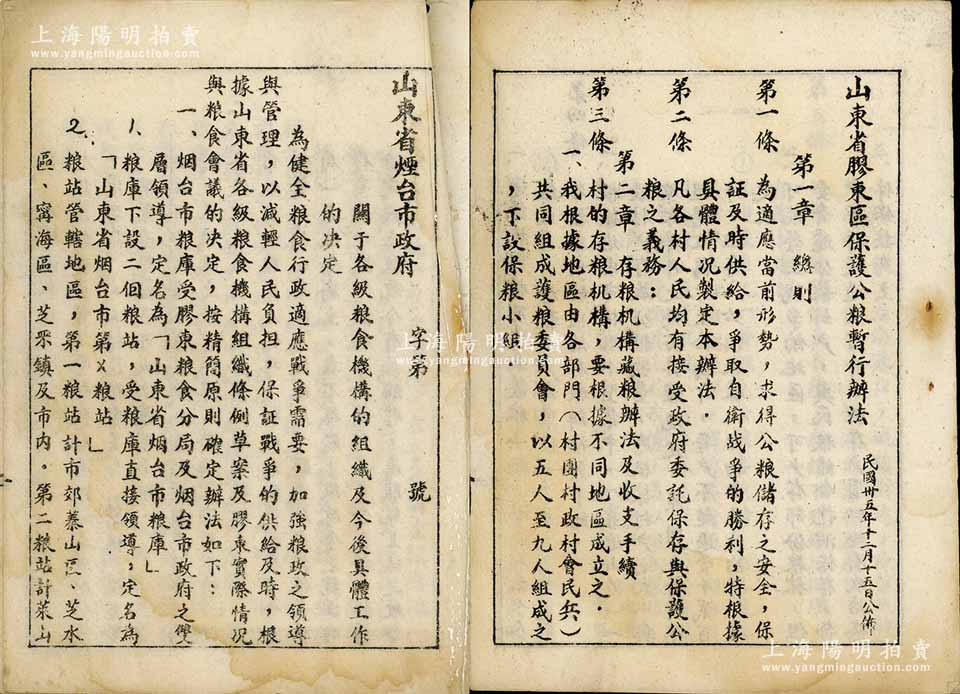 上海陽明拍賣
www.yangmingauction.com
山東省膠東區保護公粮暫行辦法
民國卅五年十二月十五日公佈
第一章 總則
第一條 為適應當前形勢，求得公粮儲存之安全，保
証及時供給，爭取自衛战爭的勝利，特根據
具體情况製定本辦法．
第二條 凡各村人民均有接受政府委託保存與保護公
粮之義務：
第二章 存粮机構藏粮辦法及收支手續
第三條 村的存粮机構，要根據不同地區成立之．
一、我根據地區由各部門（村團村政村會民兵）
共同組成護粮委員會，以五人至九人組成之
，下設保粮小組．
山東省煙台市政府 字第 號
關于各級粮食機構的組織及今後具體工作
的决定
為健全粮食行政適應戰爭需要，加強粮政之領導
與管理，以减輕人民負担，保証戰爭的供給及時，根
據山東省各級粮食機構組織條例草案及膠東實際情况
與粮食會議的决定，按精簡原則確定辦法如下：
一、烟台市粮庫受膠東粮食分局及烟台市政府之雙
層領導，定名為「山東省烟台市粮庫」
1、粮庫下設二個粮站，受粮庫直接領導，定名為
「山東省烟台市第X粮站」
2、粮站管轄地區，第一粮站計市郊蓁山區、芝水
區、寗海區、芝罘鎮及市内。第二粮站計萊山
上海陽明拍賣
www.yangmingauction.com